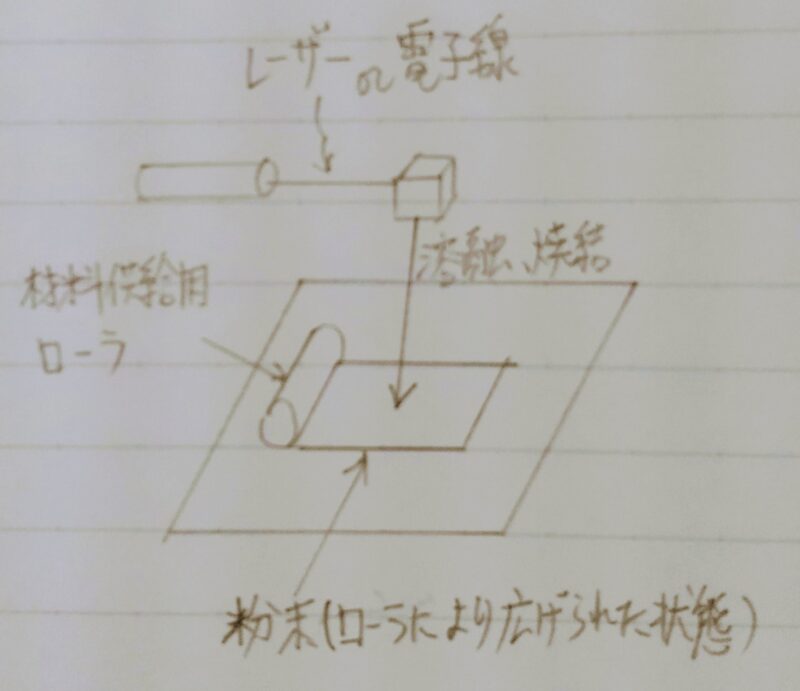 レーザー or 電子線
溶融、焼結
材料供給用
ローラ
粉末(ローラにより広げられた状態)